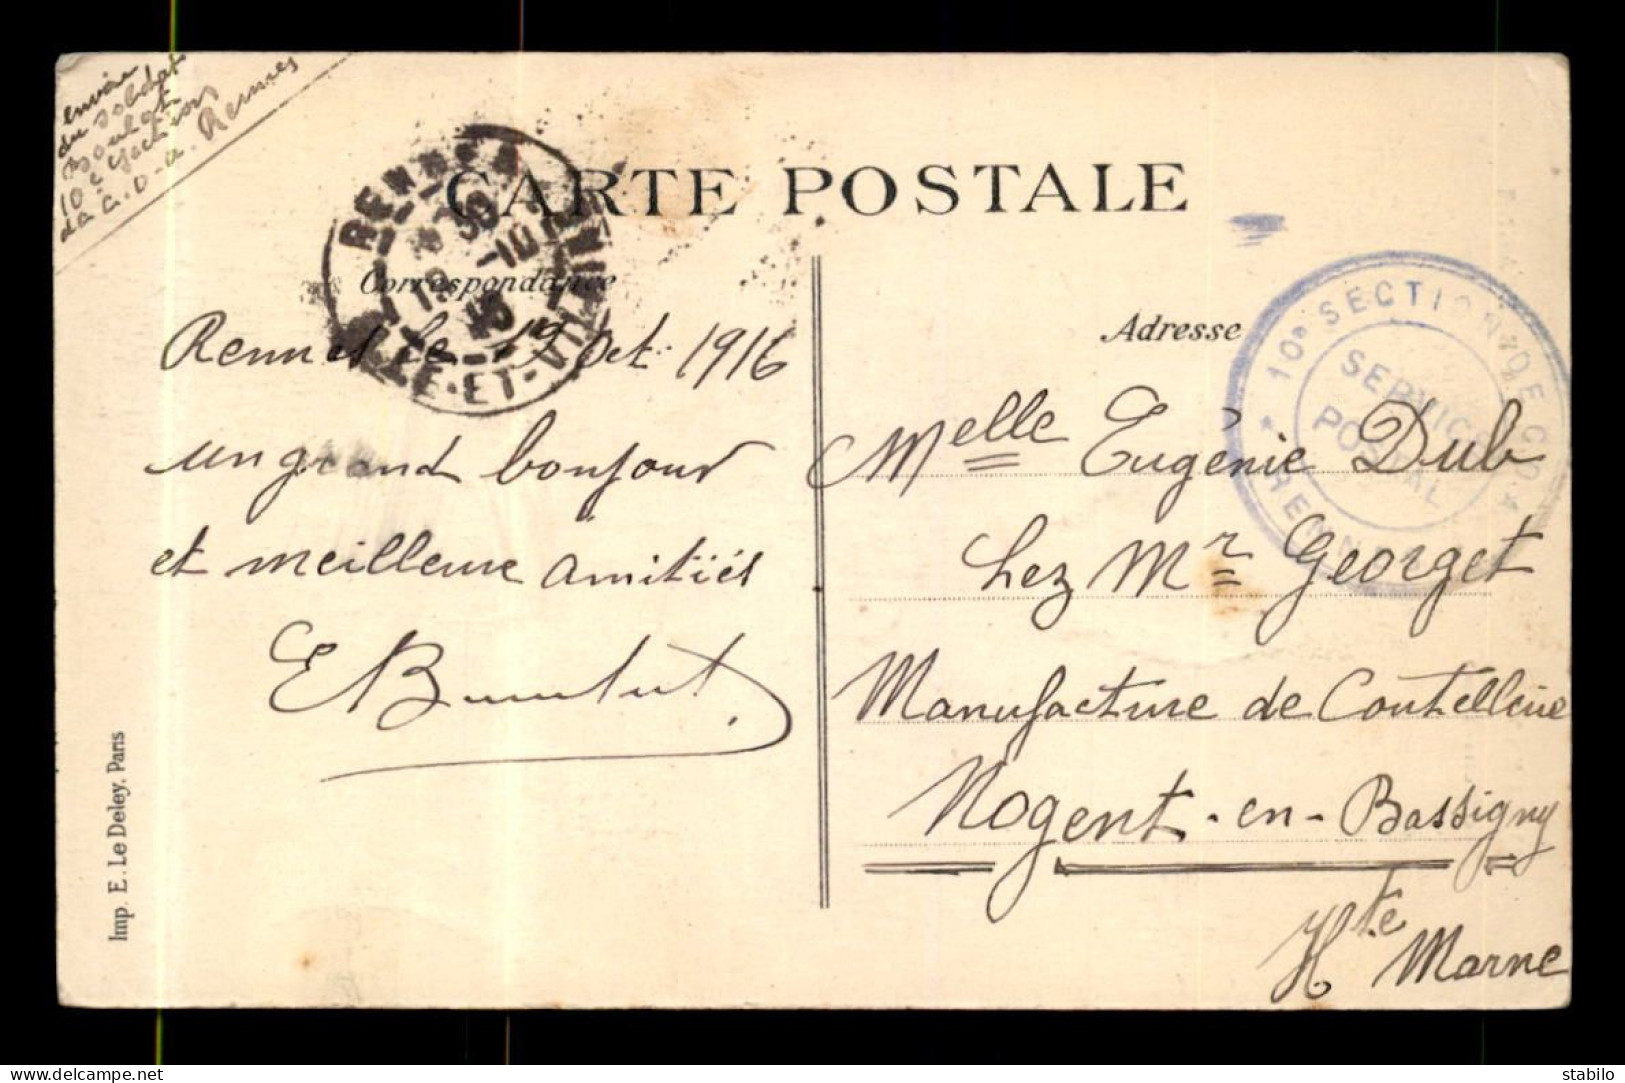 envoi
du soldat
10e Section
de C.O.A. Rennes
CARTE POSTALE
Correspondance
RENNES
30
19 -10
16
ILLE-ET-VILAINE
Rennes le 19 Oct 1916
un grand bonjour
et meilleure amitiés
Adresse
10e SECTION DE C.O.A
★ RENNES
SERVICE
POSTAL
Melle Eugénie Dub
chez Mr Georget
Manufacture de Coutellerie
Nogent-en-Bassigny
Hte Marne
Imp. E. Le Deley, Paris
delcampe.net
stabilo